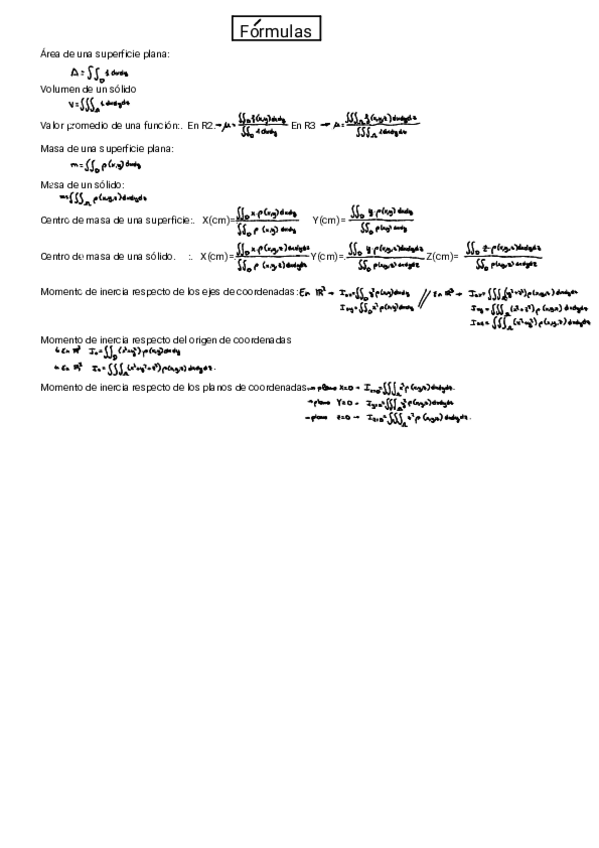 Fórmulas
Área de una superficie plana:
A = ∬_D 1 dxdy
Volumen de un sólido
V = ∭_A 1 dxdydz
Valor promedio de una función:. En R2.→ μ = ∬_D f(x,y) dxdy / ∬_D 1 dxdy En R3 → μ = ∭_A f(x,y,z) dxdydz / ∭_A 1 dxdydz
Masa de una superficie plana:
m = ∬_D ρ(x,y) dxdy
Masa de un sólido:
m = ∭_A ρ(x,y,z) dxdydz
Centro de masa de una superficie:. X(cm)= ∬_D x·ρ(x,y) dxdy / ∬_D ρ(x,y) dxdy Y(cm)= ∬_D y·ρ(x,y) dxdy / ∬_D ρ(x,y) dxdy
Centro de masa de un sólido. :. X(cm)= ∬_D x·ρ(x,y,z) dxdydz / ∬_D ρ(x,y,z) dxdydz Y(cm)= ∬_D y·ρ(x,y,z) dxdydz / ∬_D ρ(x,y,z) dxdydz Z(cm)= ∬_D z·ρ(x,y,z) dxdydz / ∬_D ρ(x,y,z) dxdydz
Momento de inercia respecto de los ejes de coordenadas: En R² → I = ∬_D y²ρ(x,y) dxdy // En R³ → I = ∭_A (y²+z²) ρ(x,y,z) dxdydz
I = ∬_D x²ρ(x,y) dxdy I = ∭_A (x²+z²) ρ(x,y,z) dxdydz
I = ∭_A (x²+y²) ρ(x,y,z) dxdydz
Momento de inercia respecto del origen de coordenadas
↳ En R² I₀ = ∬_D (x²+y²) ρ(x,y) dxdy
↳ En R³ I₀ = ∭_A (x²+y²+z²) ρ(x,y,z) dxdydz.
Momento de inercia respecto de los planos de coordenadas → plano X=0 → I_x=0 = ∭_A x²ρ(x,y,z) dxdydz.
→ plano Y=0 → I_y=0 = ∭_A y²ρ(x,y,z) dxdydz
→ plano z=0 → I_z=0 = ∭_A z²ρ(x,y,z) dxdydz.